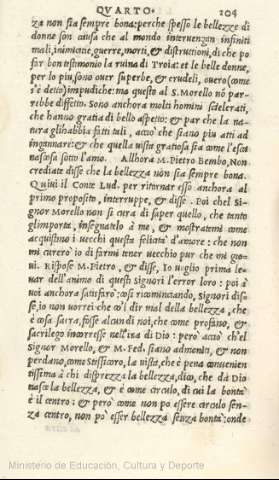 QVARTO. 104
za non sia sempre bona: perche spesso le bellezze di
donne son causa che al mondo interuengan infiniti
mali, inimicitie, guerre, morti, & distruttioni, di che po
far bon testimonio la ruina di Troia: et le belle donne,
per lo piu, sono ouer superbe, & crudeli, ouero (come
s'è detto) impudiche: ma questo al S. Morello nō par-
rebbe diffetto. Sono anchora molti homini scelerati,
che hanno gratia di bello aspetto: & par che la na-
tura gli habbia fatti tali, acciò che siano piu atti ad
ingannare: & che quella uista gratiosa sia come l'esca
nascosa sotto l'amo. Allhora M. Pietro Bembo, Non
crediate disse che la bellezza non sia sempre bona.
Quiui il Conte Lud. per ritornar esso anchora al
primo proposito, interruppe, & disse. Poi che'l Si-
gnor Morello non si cura di saper quello, che tanto
gl'importa, insegnatelo à me, & mostratemi come
acquistino i uecchi questa felicità d'amore: che non
mi curerò io di farmi tener uecchio pur che mi gio-
ui. Rispose M. Pietro, & disse, Io uoglio prima le-
uar dell'animo di questi Signori l'error loro: poi à
uoi anchora satisfarò: così ricominciando, Signori dis-
se, io non uorrei che co'l dir mal della bellezza, che
è cosa sacra, fosse alcun di noi, che come profano, &
sacrilego incorresse nell'ira di Dio: però acciò che'l
Signor Morello, & M. Fed. siano admoniti, & non
perdano, come Stesicoro, la uista, che è pena conuenien
tissima à chi disprezza la bellezza, dico, che da Dio
nasce la bellezza, & è come circulo, di cui la bontà
è il centro: & però come non po essere circulo sen-
za centro, non po esser bellezza senza bontà: onde
Ministerio de Educación, Cultura y Deporte